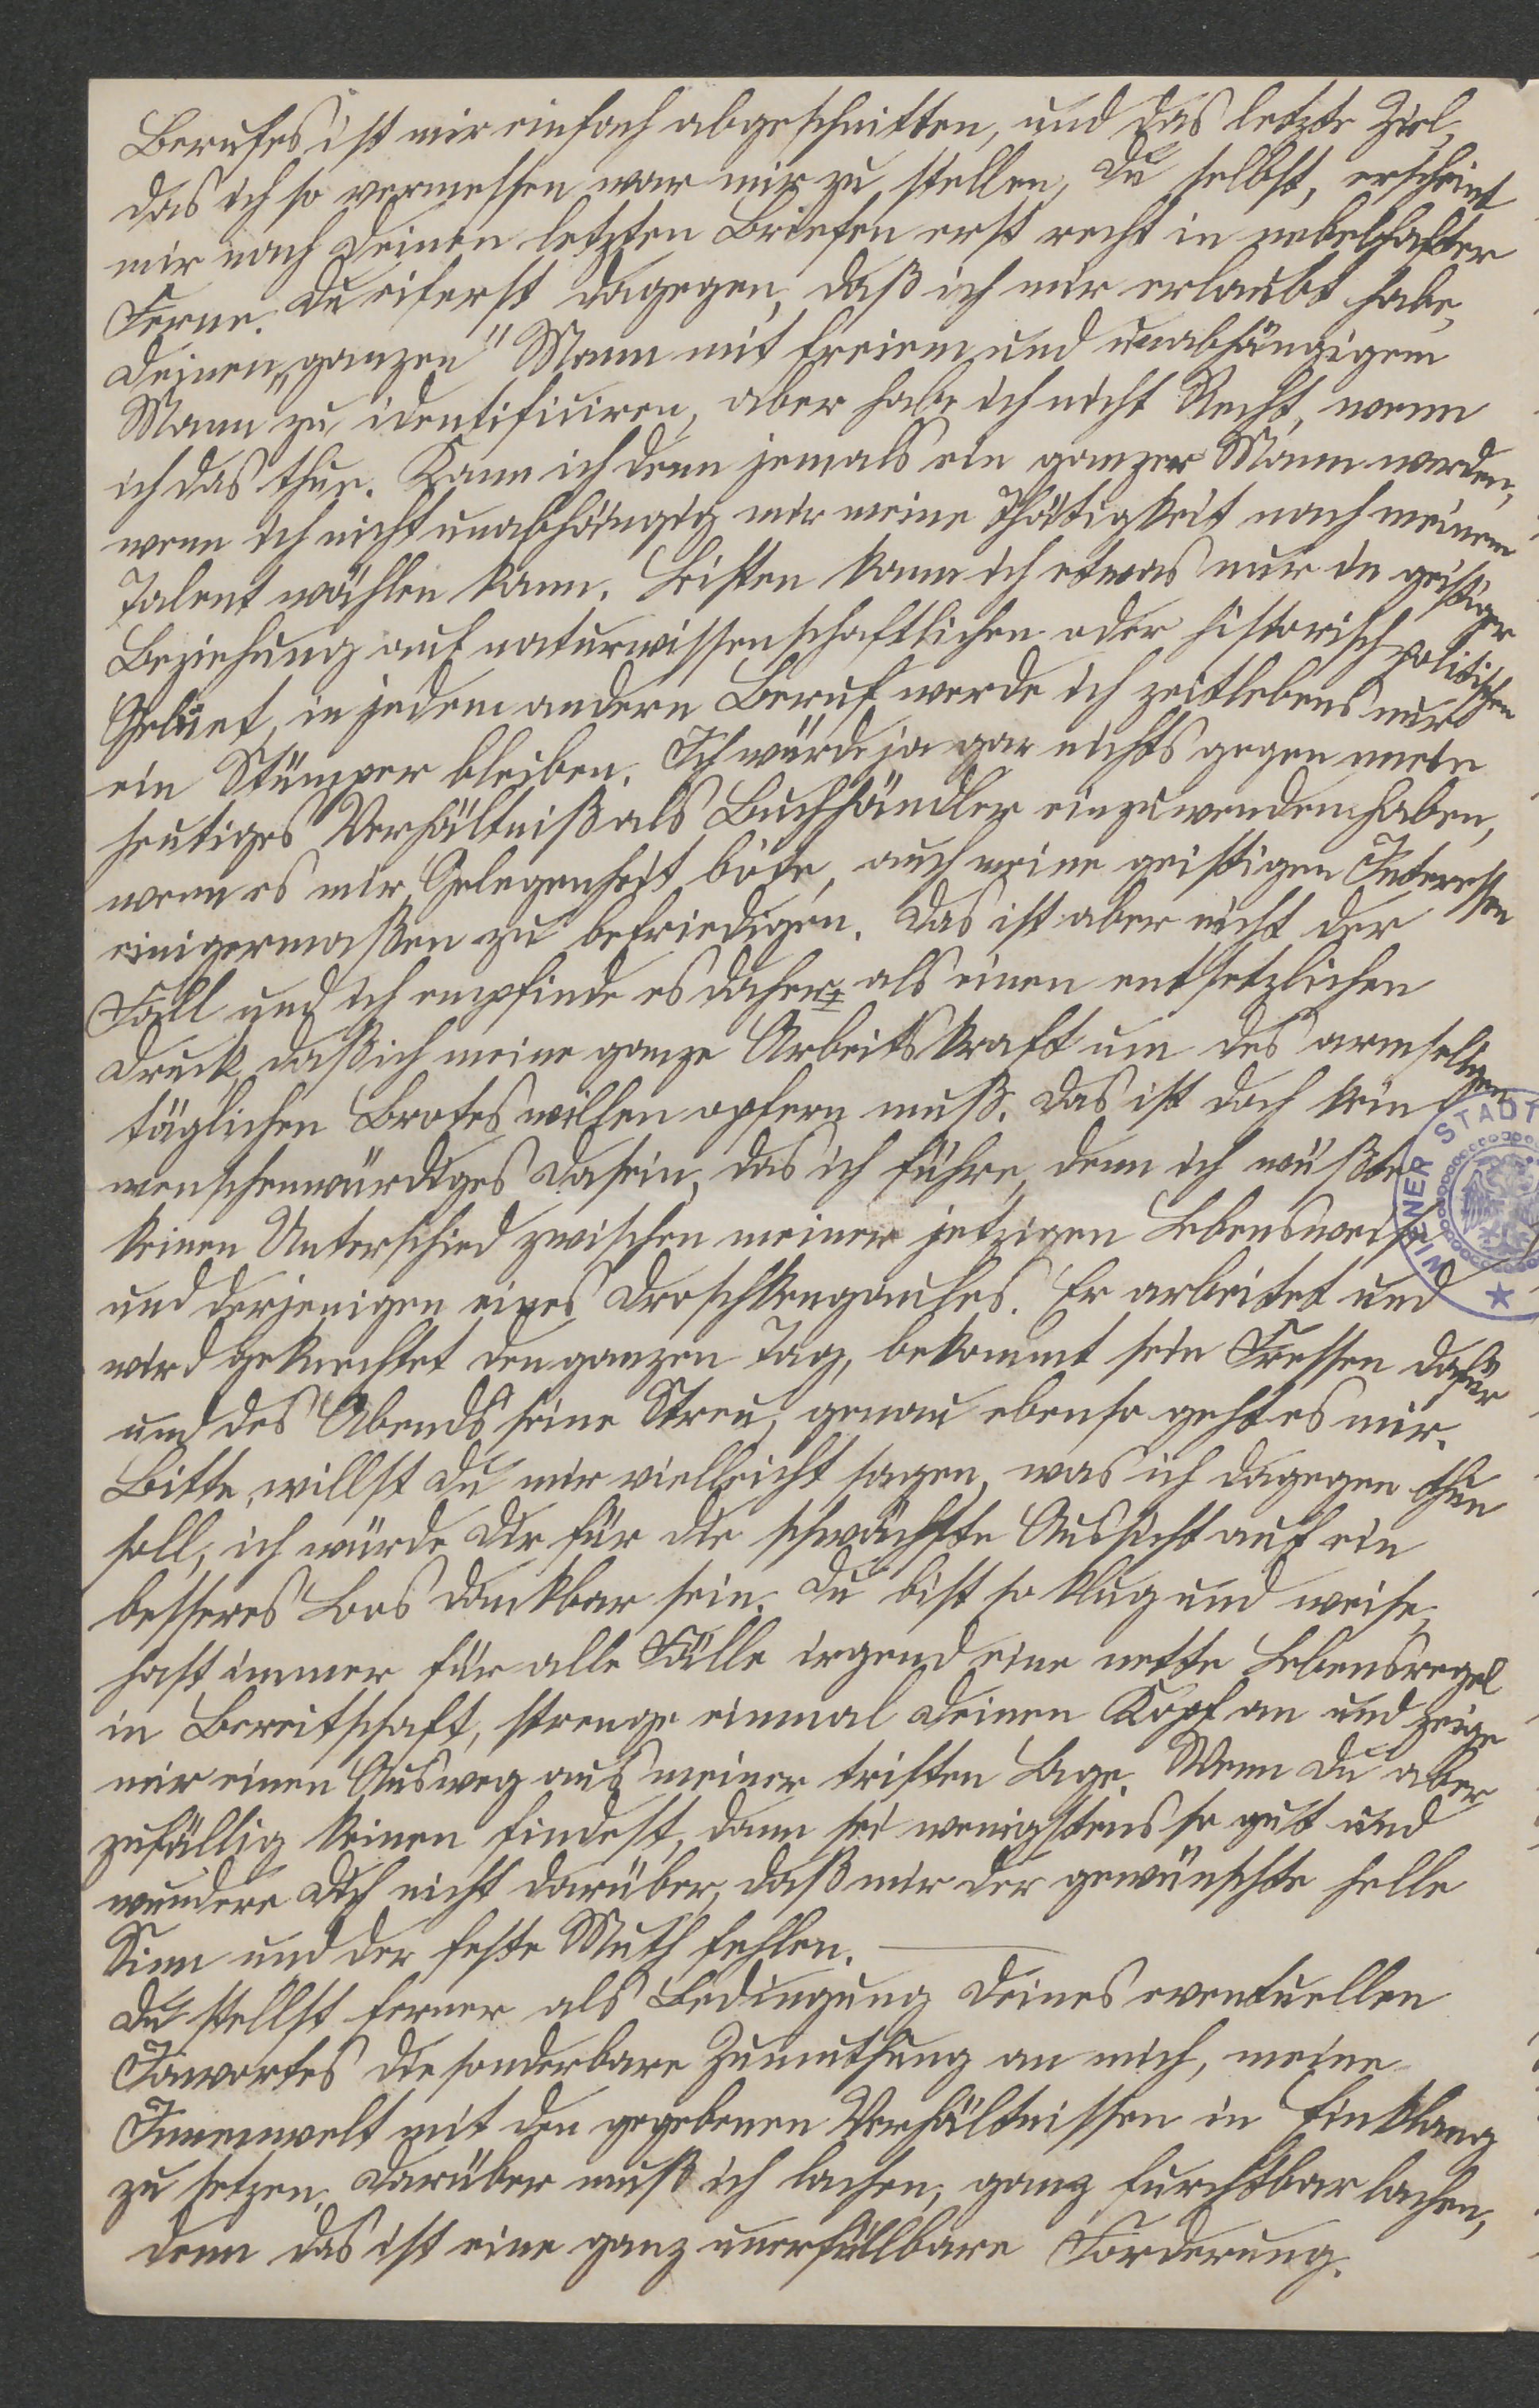 Berufes ist mir einfach abgeschnitten, und das letzte Ziel,
das ich so vermessen war mir zu stellen, Du selbst, erscheint
mir nach Deinen letzten Briefen erst recht in nebelhafter
Ferne. Du eiferst dagegen, daß ich mir erlaubt habe,
Deinen „ganzen" Mann mit freiem und unabhängigem
Mann zu identificiren, aber habe ich nicht Recht, wenn
ich das thue. Kann ich denn jemals ein ganzer Mann werden,
wenn ich nicht unabhängig mir meine Thätigkeit nach meinem
Talent wählen kann. Leisten kann ich etwas nur in geistiger
Beziehung auf naturwissenschaftlichen oder historisch politischen
Gebiet, in jedem andern Beruf werde ich zeitlebens nur
ein Stümper bleiben. Ich würde ja gar nichts gegen mein
heutiges Verhältniß als Buchhändler einzuwenden haben,
wenn es mir Gelegenheit böte, auch meine geistigen Interessen
einigermaßen zu befriedigen. Das ist aber nicht der
Fall und ich empfinde es daher als einen entsetzlichen
Druck, daß ich meine ganze Arbeitskraft um des armseligen
täglichen Brotes willen opfern muß. Das ist doch kein
menschenwürdiges Dasein, das ich führe, denn ich wüßte
keinen Unterschied zwischen meiner jetzigen Lebensweise
und derjenigen eines Droschkengaules. Er arbeitet und
wird geknechtet den ganzen Tag, bekommt sein Fressen dafür
und des Abends seine Streu, genau ebenso geht es mir.
Bitte, willst Du mir vielleicht sagen, was ich dagegen thun
soll, ich würde Dir für die schwächste Aussicht auf ein
besseres Loos dankbar sein. Du bist so klug und weise,
hast immer für alle Fälle irgend eine nette Lebensregel
in Bereitschaft, strenge einmal Deinen Kopf an und zeige
mir einen Ausweg aus meiner tristen Lage. Wenn Du aber
zufällig keinen findest, dann sei wenigstens so gut und
wundere Dich nicht darüber, daß mir der gewünschte helle
Sinn und der feste Muth fehlen. —
Du stellst ferner als Bedingung Deines eventuellen
Jawortes die sonderbare Zumuthung an mich, meine
Innenwelt mit den gegebenen Verhältnissen in Einklang
zu setzen. Darüber muß ich lachen, ganz furchtbar lachen,
denn das ist eine ganz unerfüllbare Forderung.
WIENER STADT